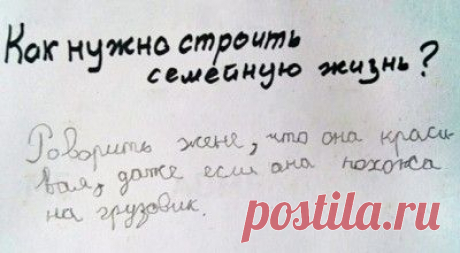 Как нужно строить
семейную жизнь?
Говорить жене, что она краси-
вая, даже если она похожа
на грузовик.
postila.ru